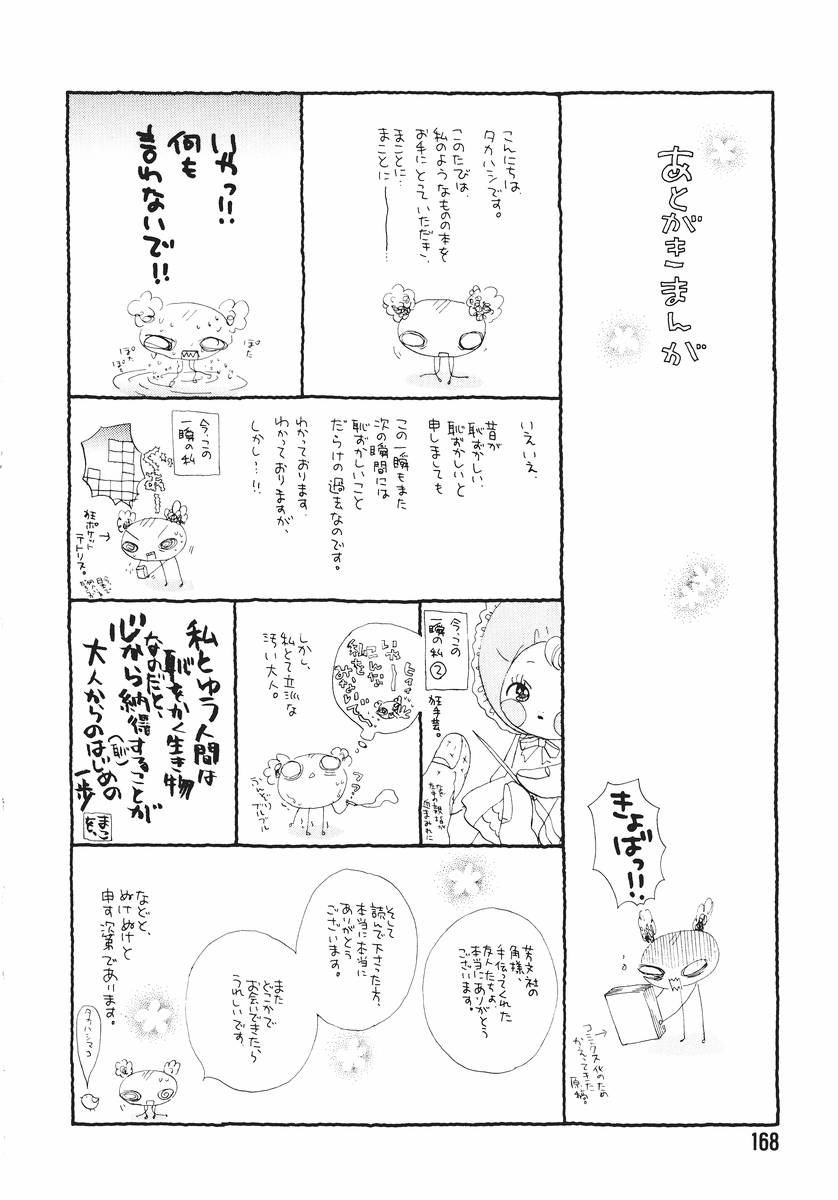 あとがきまんが
きょばっ!!
コミックス化のため
かえってきた
原稿。
こんにちは、
タカハシです。
このたびは、
私のようなものの本を
お手にとっていただき、
まことに…
まことに――――……
いやっ!!
何も
言わないで!!
ぽた
ぽた
ぽた
いえいえ、
昔が
恥ずかしい、
恥ずかしいと
申しましても
この一瞬もまた
次の瞬間には
恥ずかしいこと
だらけの過去なのです。
わかっております、
わかっておりますが、
しかし…!!
今、この
一瞬の私
狂ポケット
テトリス。
今、この
一瞬の私②
狂手芸。
なぜか親指が
血まみれに
いやー
こんな
私を
みないで
しかし、
私とて立派な
汚い大人。
ブルブル
私とゆう人間は
恥をかく生き物
なのだと、
心から納得することが
大人からのはじめの
(恥)
一歩
まこ
芳文社の
角様、
手伝ってくれた
友人たちよ、
本当にありがとう
ございます。
そして
読んで下さった方、
本当に本当に
ありがとう
ございます。
また
どこかで
お会いできたら
うれしいです。
などと、
ぬけぬけと
申す次第であります。
タカハシマコ
168